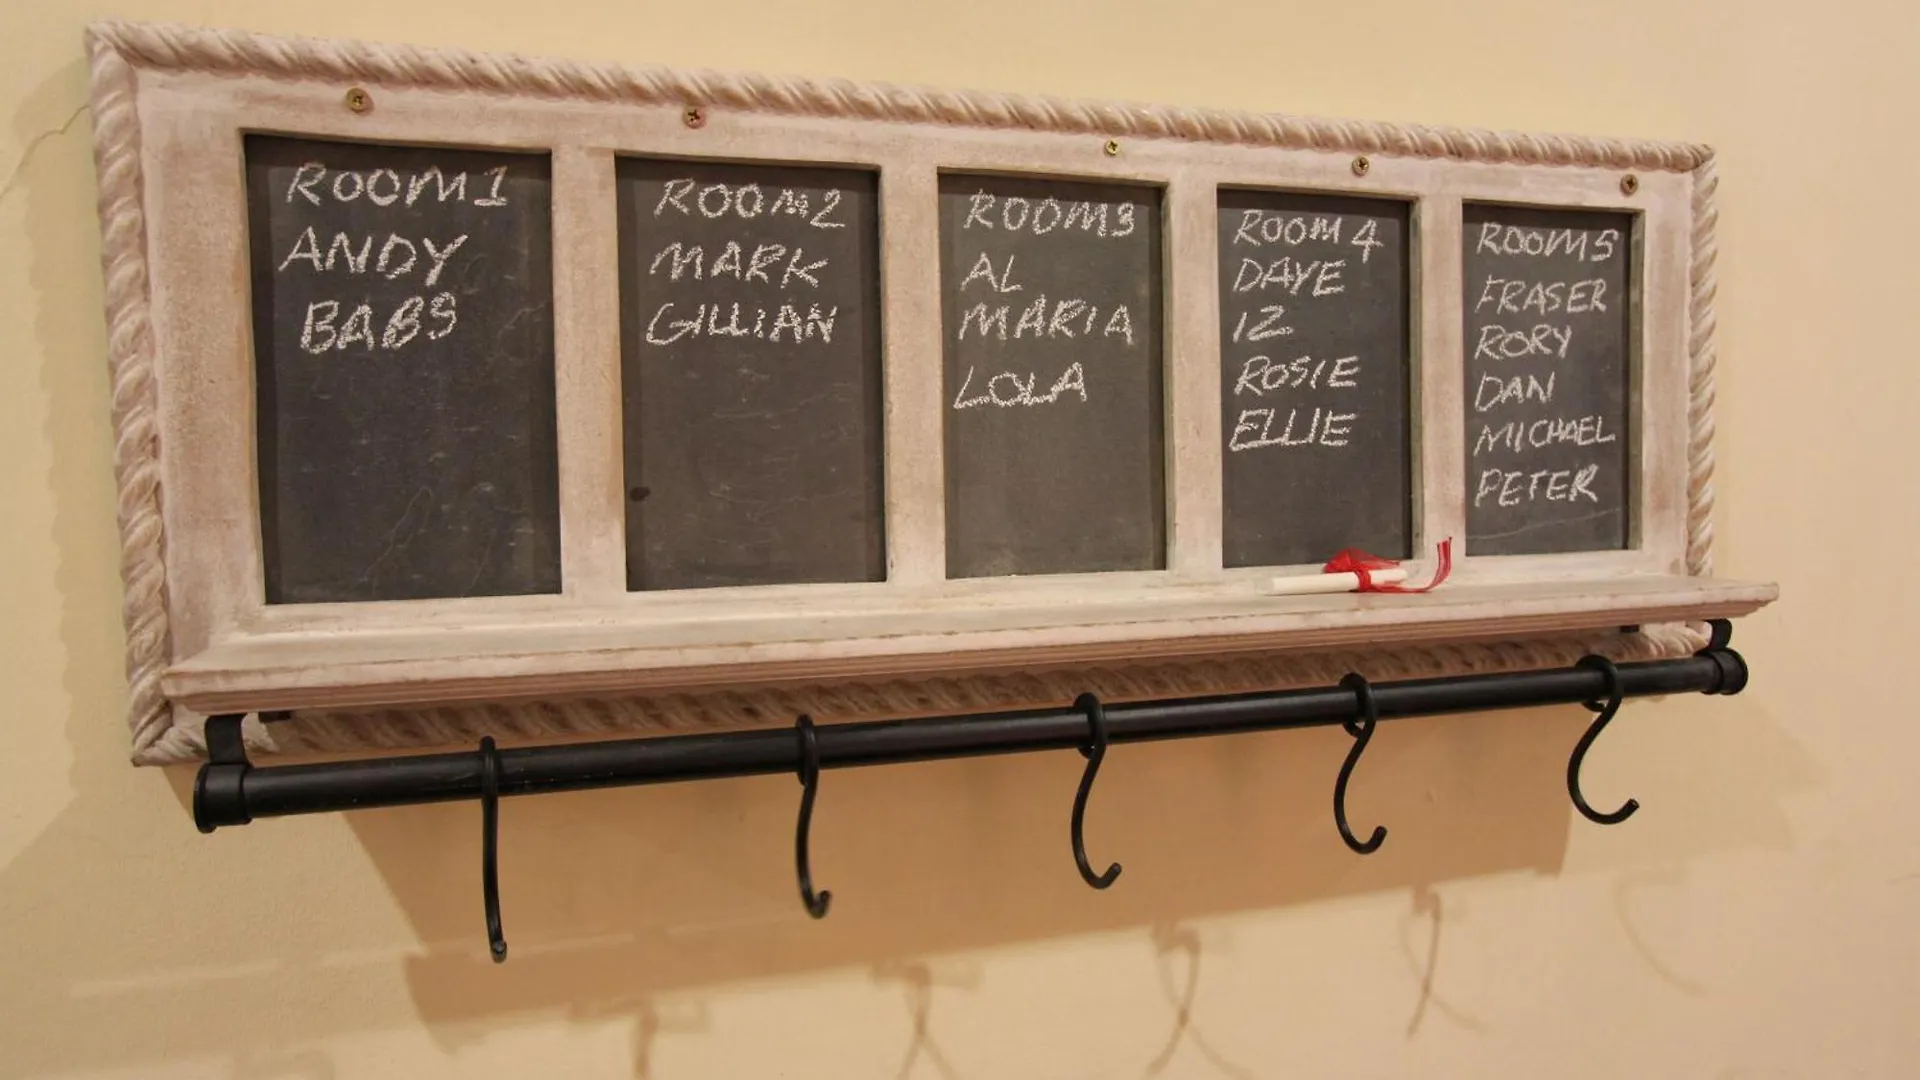 ROOM1
ANDY
BABS
ROOM2
MARK
GILLIAN
ROOM3
AL
MARIA
LOLA
ROOM 4
DAVE
IZ
ROSIE
ELLIE
ROOM5
FRASER
RORY
DAN
MICHAEL
PETER